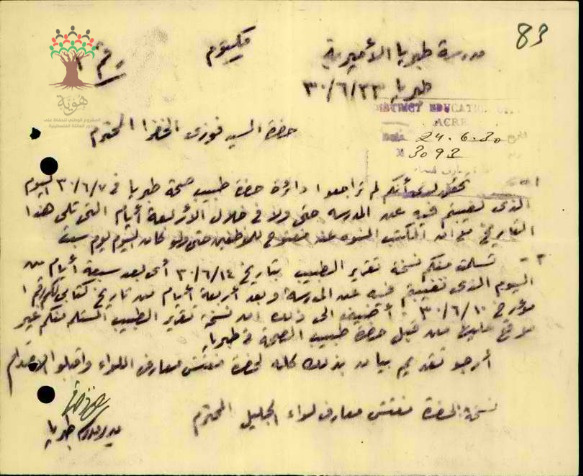 83
مدرسة طبريا الأميرية
مكتوم
طبريا ٣٠/٦/٢٣
هوية
DISTRICT EDUCATION
ACRE
24.6.30
3093
حضرة السيد فوزي الخضرا المحترم
١ - تحقق لدي أنكم لم تراجعوا دائرة حضرة طبيب صحة طبريا في ٣٠/٦/٧ اليوم
الذي تغيبتم فيه عن المدرسة حتى ولا في خلال الأربعة أيام التي تلي هذا
التاريخ مع أن المكتب المنوه عنه مفتوح للموظفين حتى ولو كان اليوم يوم سبت
٢ - تسلمت منكم نسخة تقرير الطبيب بتاريخ ٣٠/٦/١٤ أي بعد سبعة أيام من
اليوم الذي تغيبتم فيه عن المدرسة وبعد أربعة أيام من تاريخ كتابي لكم
مؤرخ ٣٠/٦/١٠ أضيف الى ذلك ان نسخة تقرير الطبيب المستلمة منكم غير
موقع عليها من قبل حضرة طبيب الصحة في طبريا
أرجو تقديم بيان بذلك كله لحضرة مفتش معارف اللواء واقبلوا احترامي
نسخة لحضرة مفتش معارف لواء الجليل المحترم
مدير مدرسة طبريا